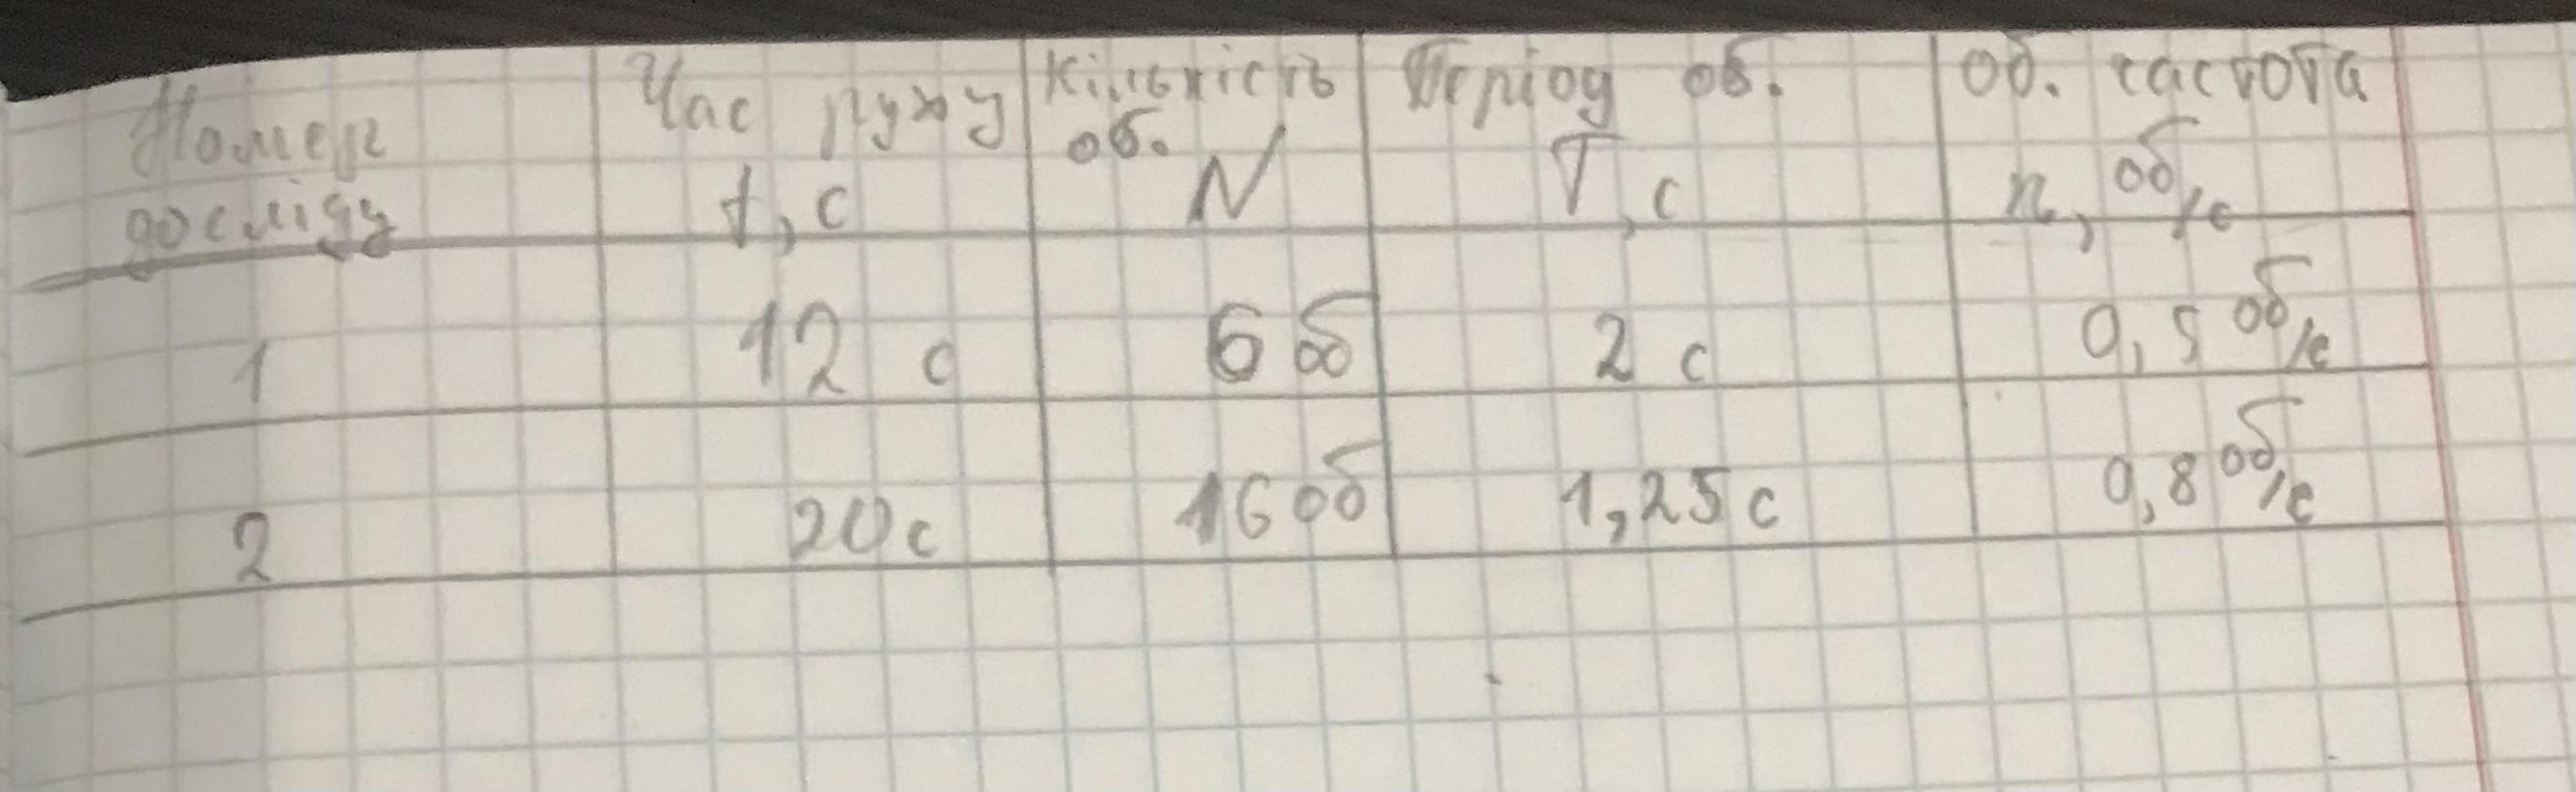 Номер досліду
Час руху t, с
Кількість об. N
Період об. T, с
об. частота n, об/с
1 12 с 6 об 2 с 0,5 об/с
2 20 с 16 об 1,25 с 0,8 об/с